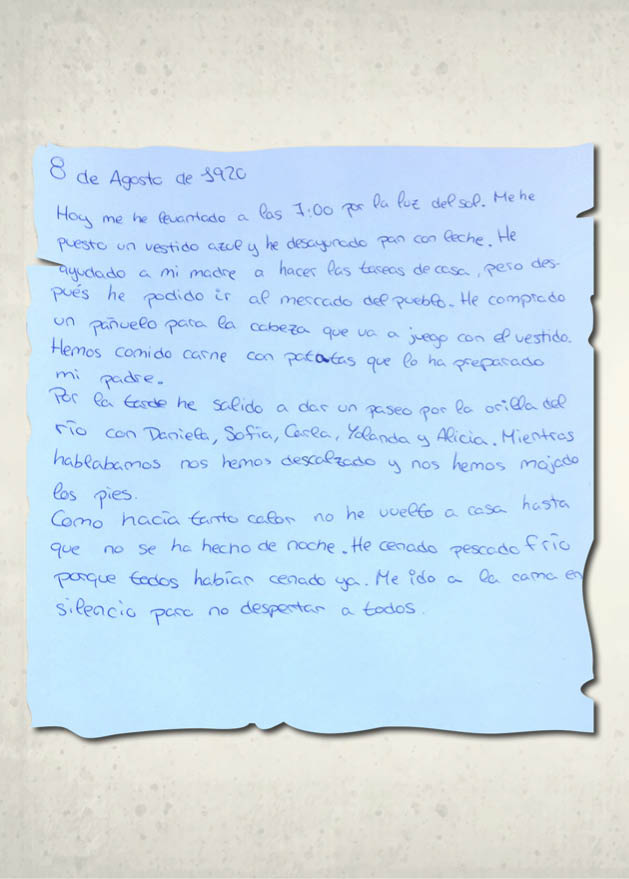 8 de Agosto de 1920
Hoy me he levantado a las 7:00 por la luz del sol. Me he
puesto un vestido azul y he desayunado pan con leche. He
ayudado a mi madre a hacer las tareas de casa, pero des-
pués he podido ir al mercado del pueblo. He comprado
un pañuelo para la cabeza que va a juego con el vestido.
Hemos comido carne con patatas que lo ha preparado
mi padre.
Por la tarde he salido a dar un paseo por la orilla del
río con Daniela, Sofía, Carla, Yolanda y Alicia. Mientras
hablabamos nos hemos descalzado y nos hemos mojado
los pies.
Como hacía tanto calor no he vuelto a casa hasta
que no se ha hecho de noche. He cenado pescado frío
porque todos habían cenado ya. Me ido a la cama en
silencio para no despertar a todos.